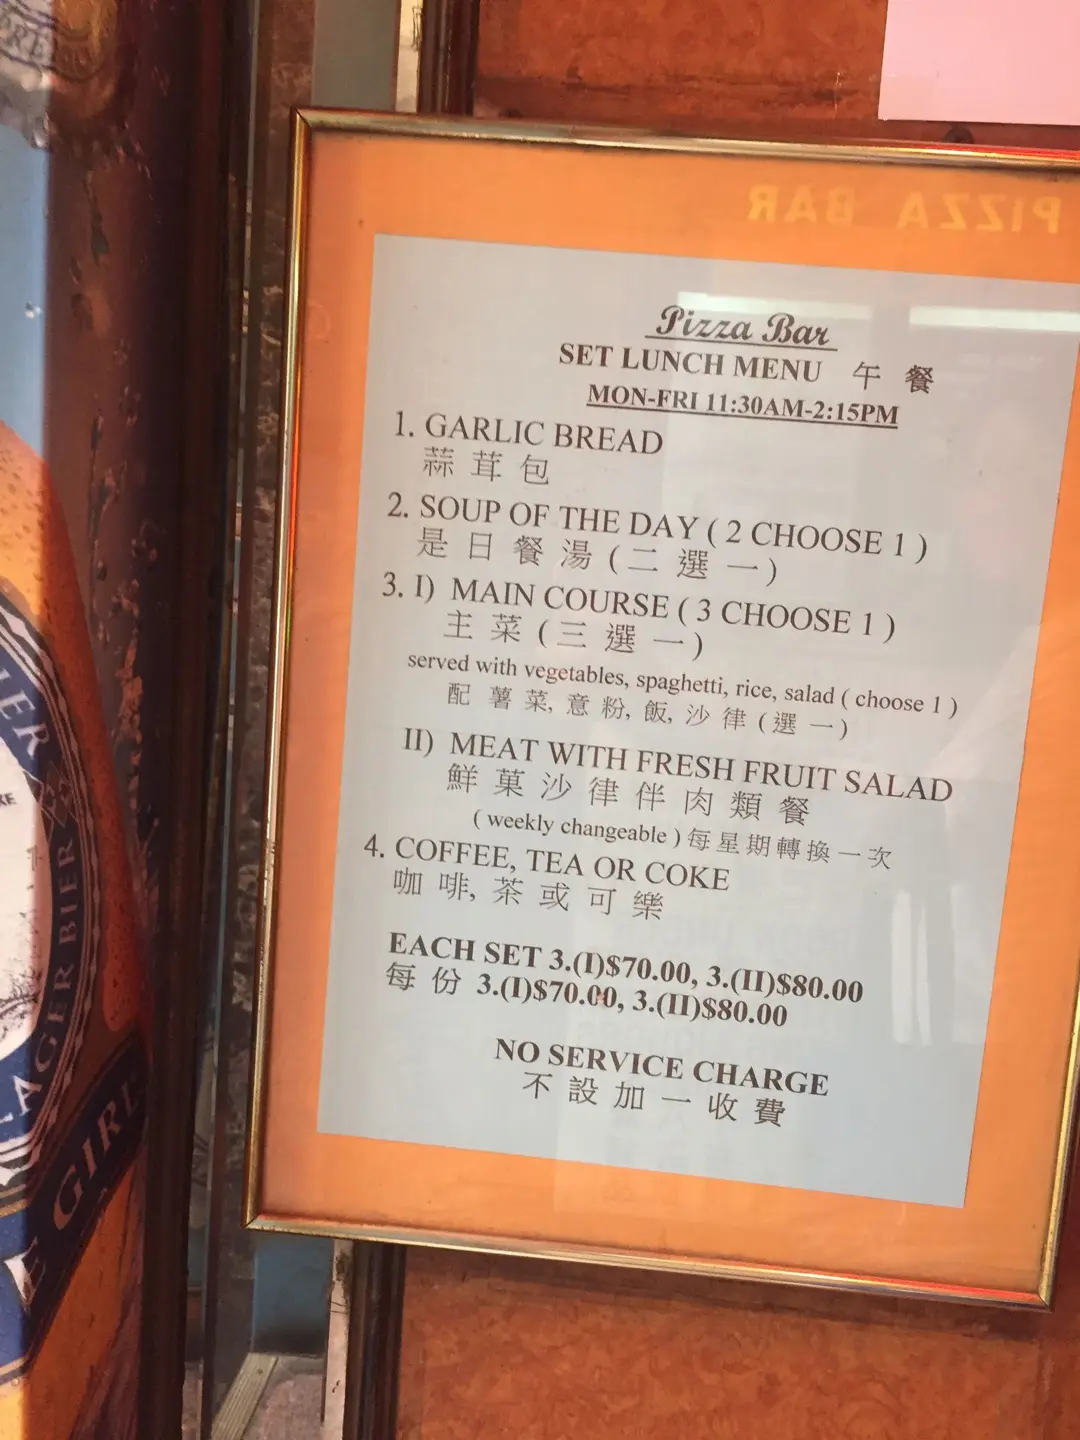 PIZZA BAR
Pizza Bar
SET LUNCH MENU 午餐
MON-FRI 11:30AM-2:15PM
1. GARLIC BREAD
蒜茸包
2. SOUP OF THE DAY ( 2 CHOOSE 1 )
是日餐湯(二選一)
3. I) MAIN COURSE ( 3 CHOOSE 1 )
主菜(三選一)
served with vegetables, spaghetti, rice, salad ( choose 1 )
配薯菜, 意粉, 飯, 沙律(選一)
II) MEAT WITH FRESH FRUIT SALAD
鮮菓沙律伴肉類餐
( weekly changeable ) 每星期轉換一次
4. COFFEE, TEA OR COKE
咖啡, 茶或可樂
EACH SET 3.(I)$70.00, 3.(II)$80.00
每份 3.(I)$70.00, 3.(II)$80.00
NO SERVICE CHARGE
不設加一收費
LAGER BIER
GIRL